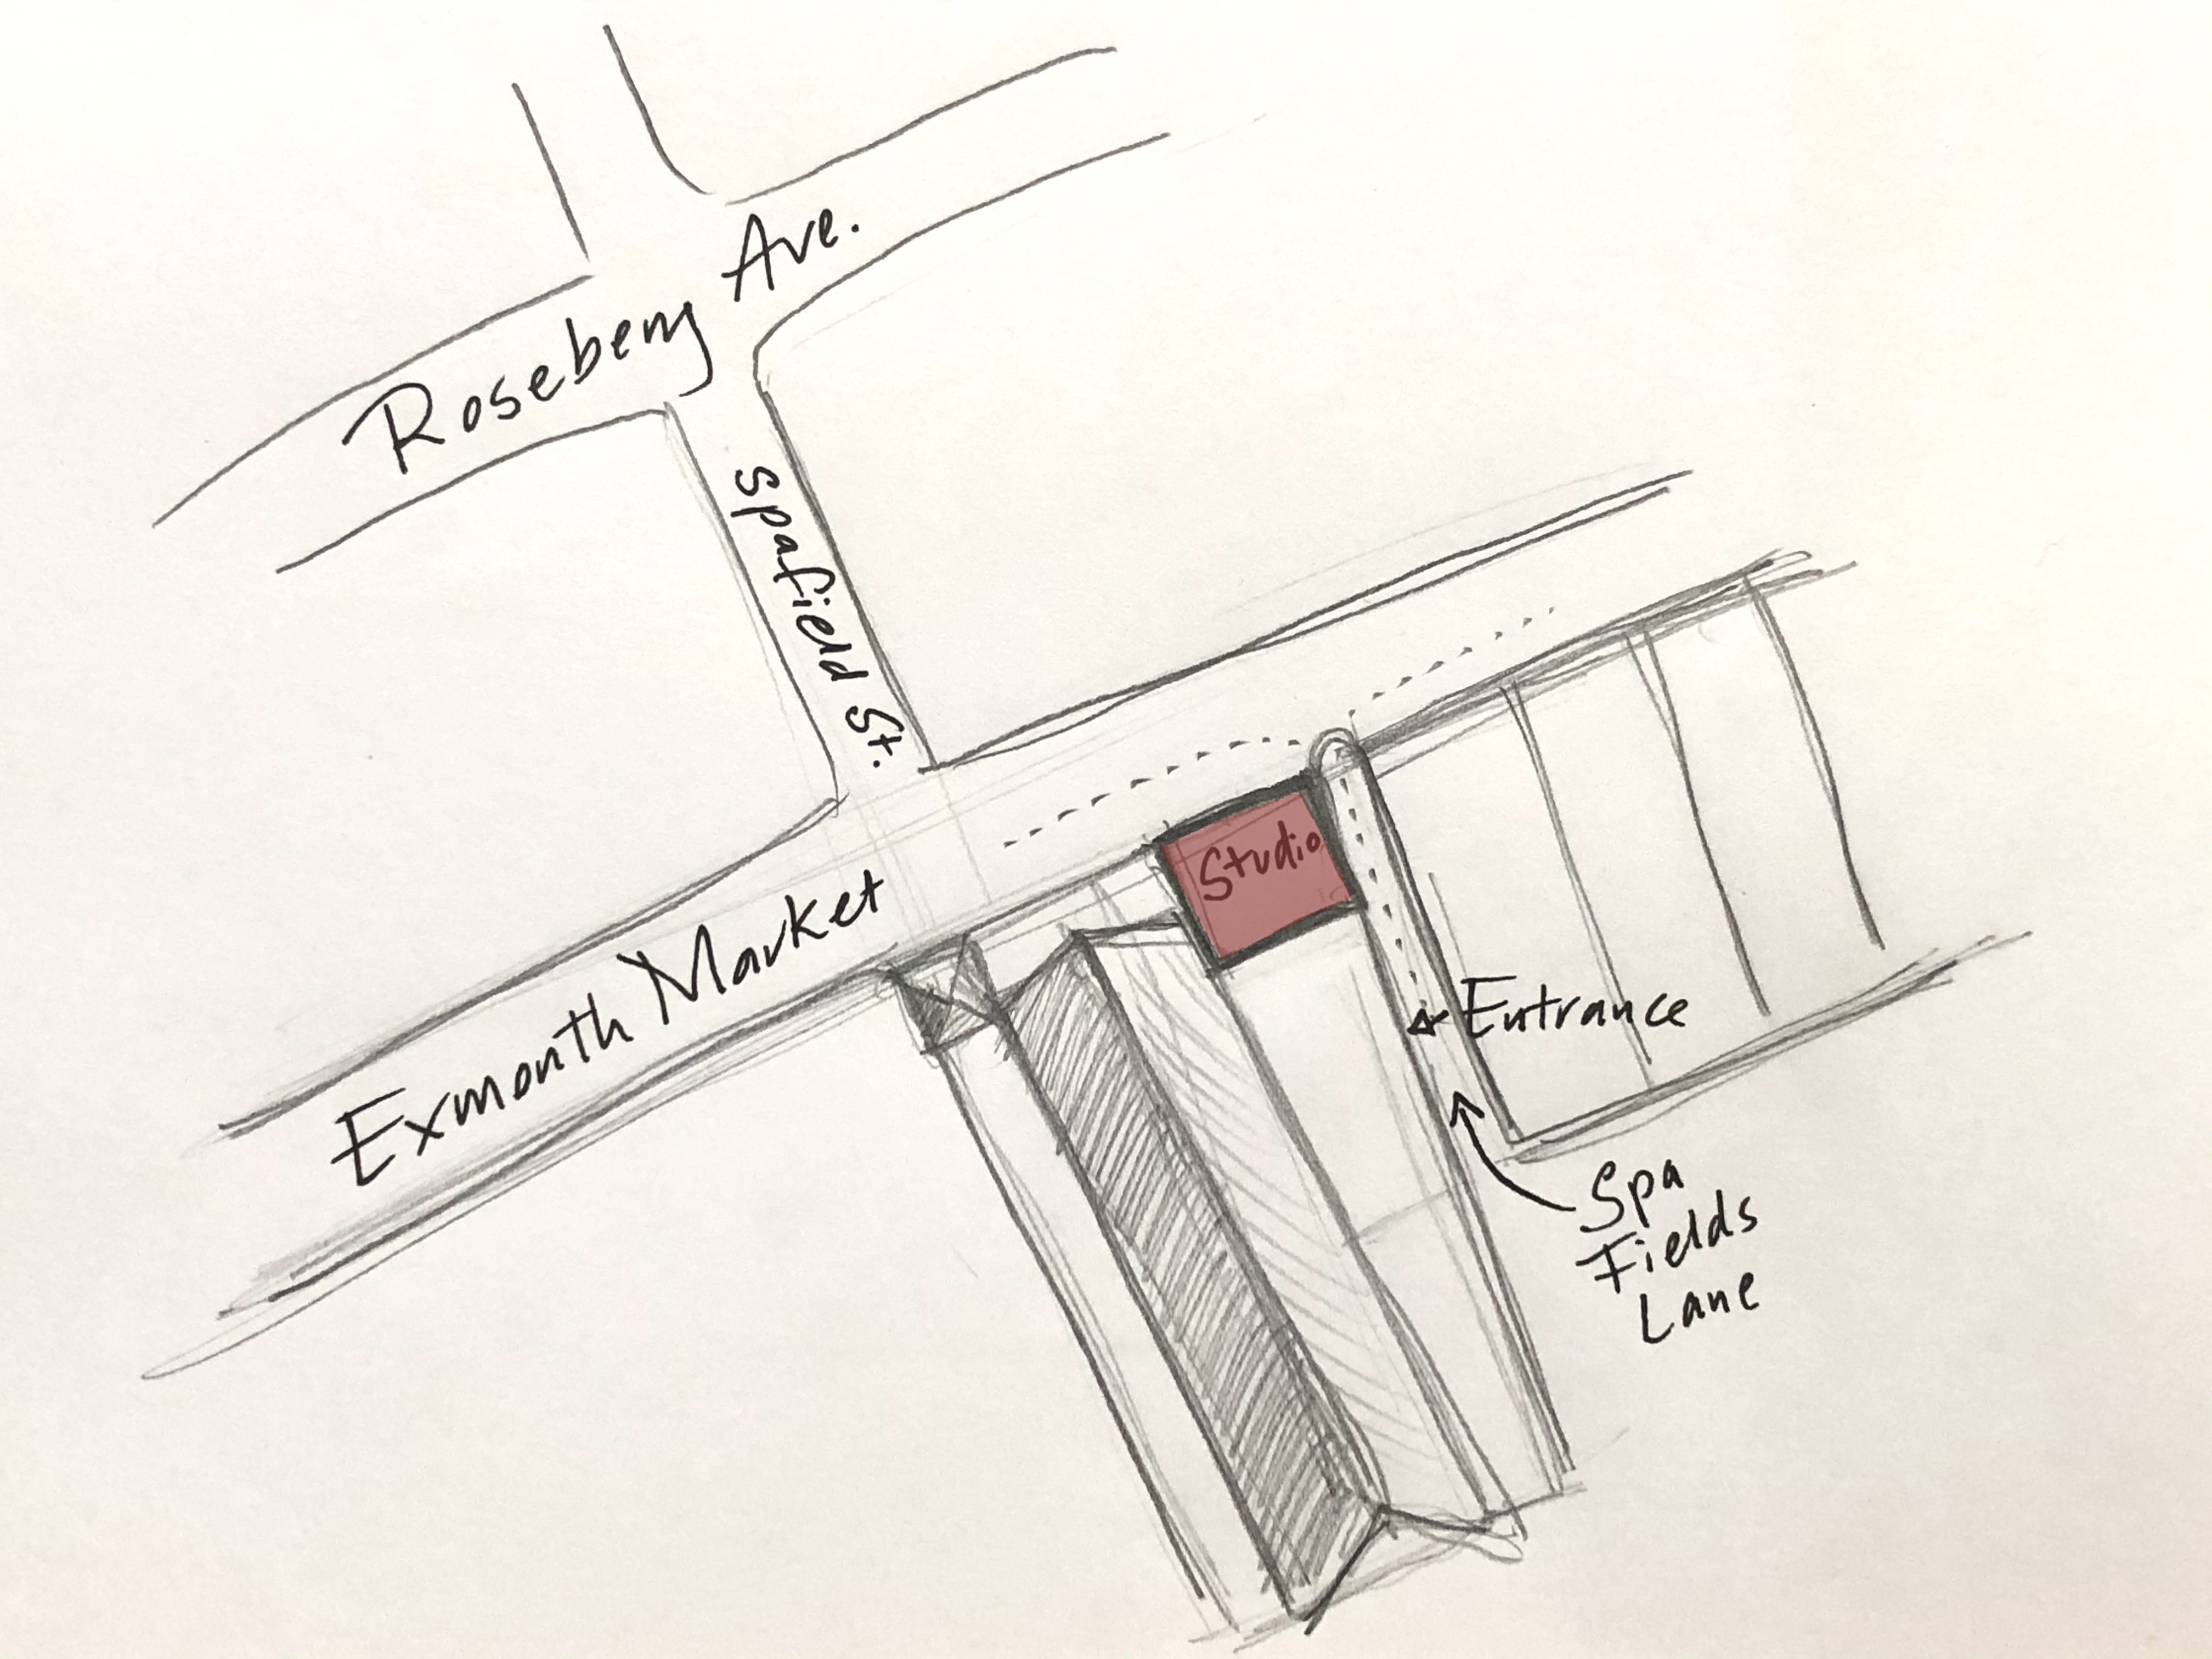 Rosebery Ave.
Spafield St.
Exmouth Market
Studio
Entrance
Spa
Fields
Lane